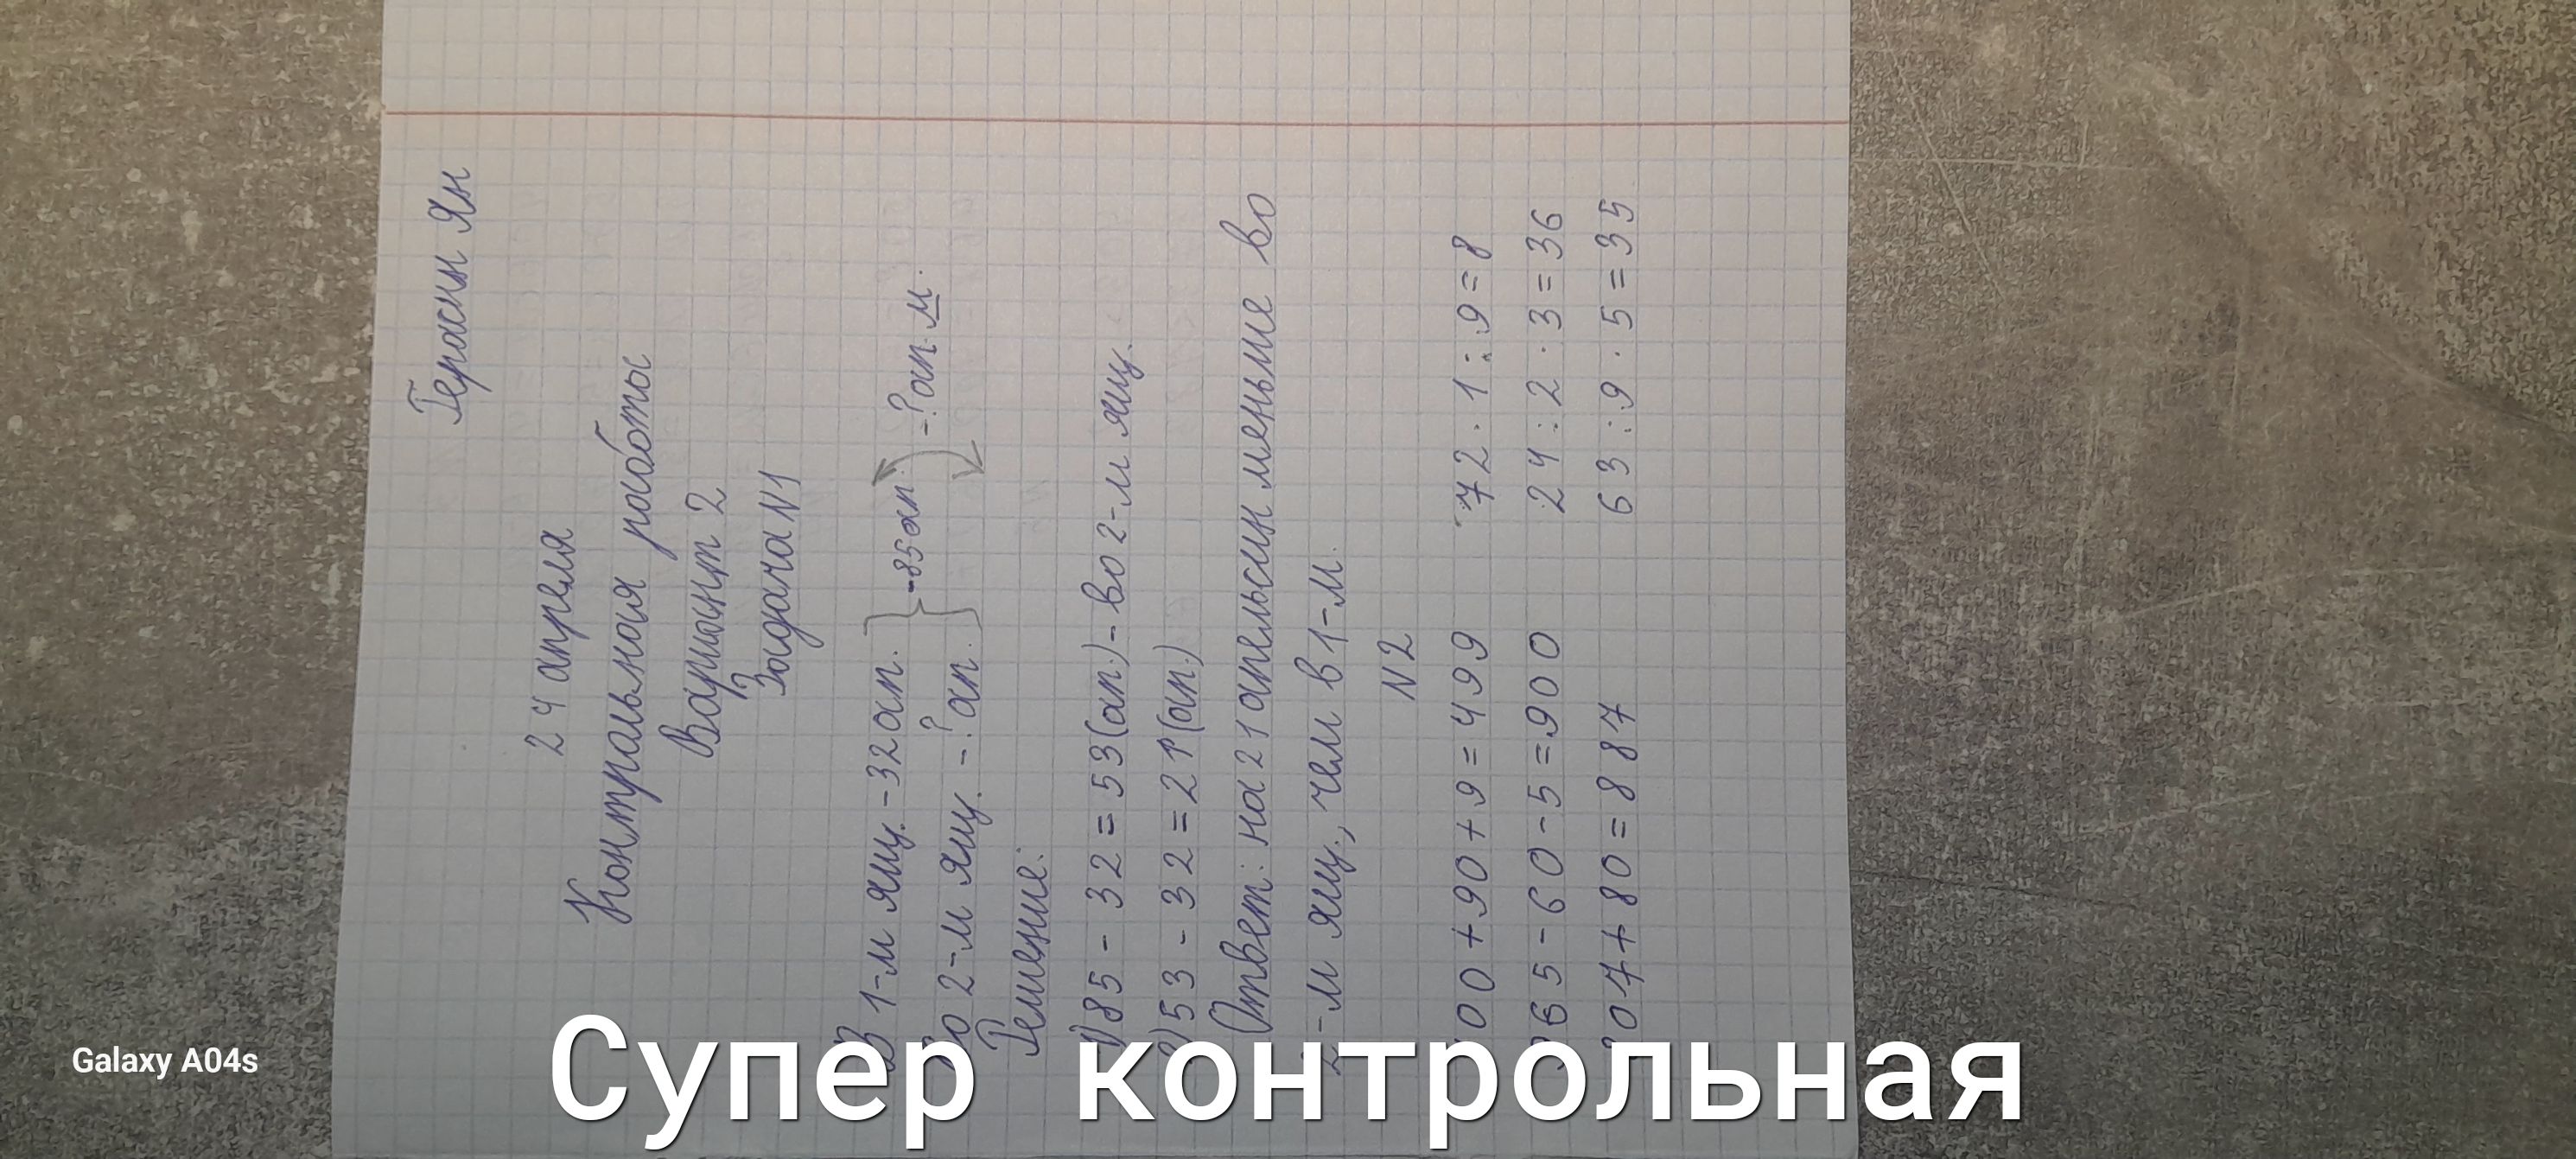 Герасин Ян
24 апреля
Контральная работы
Вариант 2
Задача N1
В 1-м ящ. - 32 ап. - 85 ап. - ? ап. м.
Во 2-м ящ. - ? ап.
Решение:
1) 85 - 32 = 53 (ап.) - во 2-м ящ.
2) 53 - 32 = 21 (ап.)
Ответ: на 21 апельсин меньше во
2-м ящ., чем в 1-м.
N2
00 + 90 + 9 = 499 72 · 1 : 9 = 8
965 - 60 - 5 = 900 24 : 2 · 3 = 36
807 + 80 = 887 63 : 9 · 5 = 35
Galaxy A04s
Супер контрольная